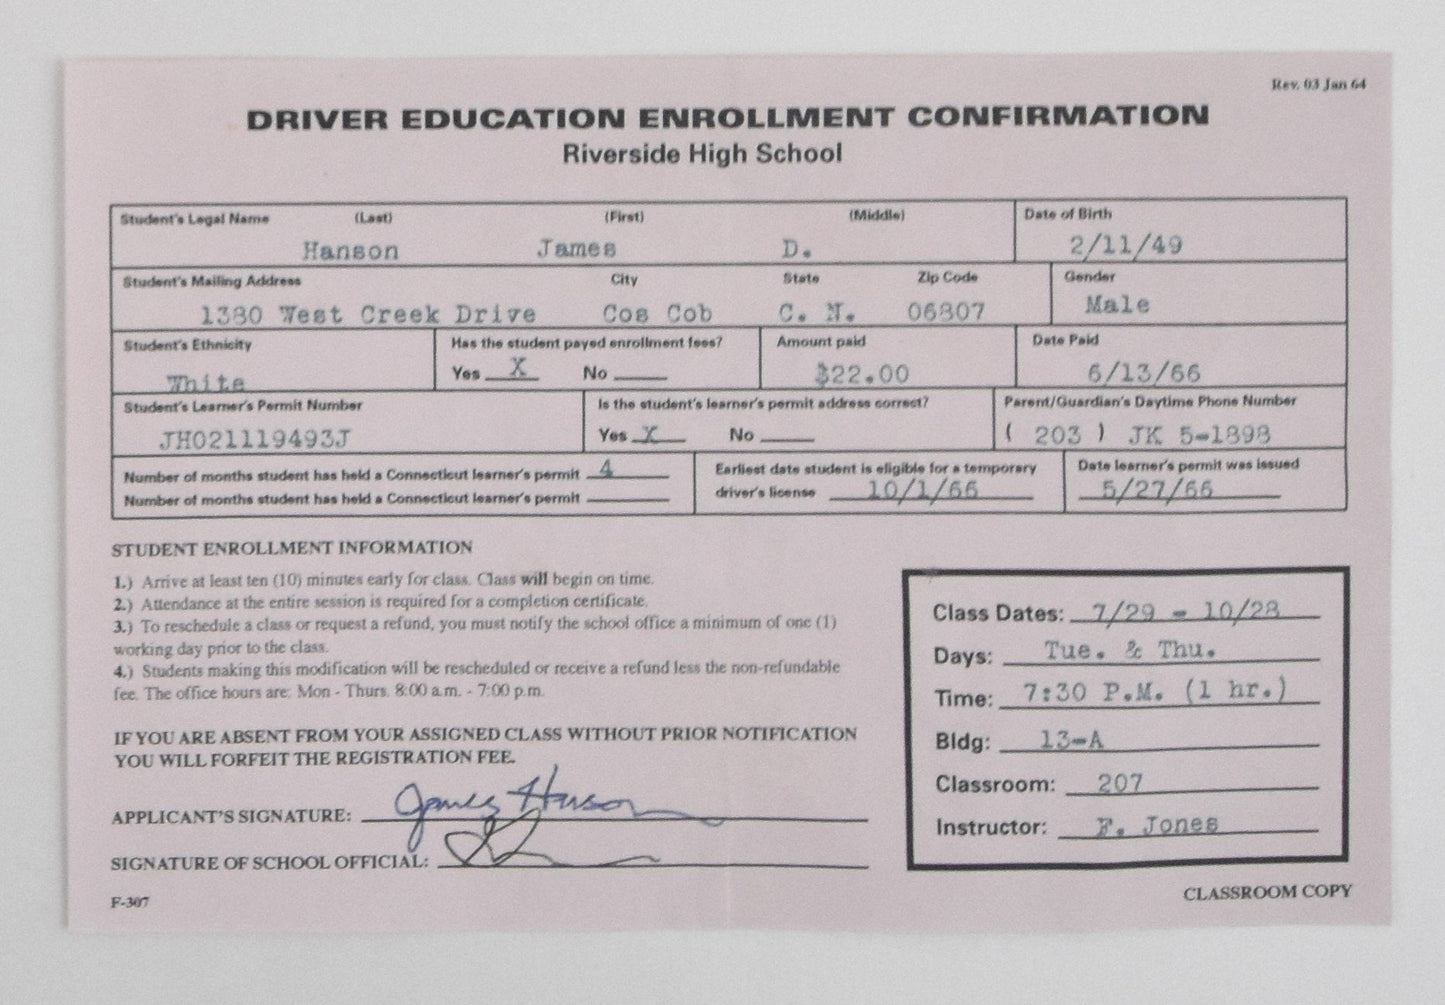 Rev. 03 Jan 64
DRIVER EDUCATION ENROLLMENT CONFIRMATION
Riverside High School
Student's Legal Name (Last) (First) (Middle) Date of Birth
Hanson James D. 2/11/49
Student's Mailing Address City State Zip Code Gender
1380 West Creek Drive Cos Cob C. N. 06807 Male
Student's Ethnicity Has the student payed enrollment fees? Amount paid Date Paid
White Yes X No $22.00 6/13/66
Student's Learner's Permit Number Is the student's learner's permit address correct? Parent/Guardian's Daytime Phone Number
JH021119493J Yes X No ( 203 ) JK 5-1898
Number of months student has held a Connecticut learner's permit 4 Earliest date student is eligible for a temporary Date learner's permit was issued
Number of months student has held a Connecticut learner's permit driver's license 10/1/66 5/27/66
STUDENT ENROLLMENT INFORMATION
1.) Arrive at least ten (10) minutes early for class. Class will begin on time.
2.) Attendance at the entire session is required for a completion certificate.
3.) To reschedule a class or request a refund, you must notify the school office a minimum of one (1)
working day prior to the class.
4.) Students making this modification will be rescheduled or receive a refund less the non-refundable
fee. The office hours are: Mon - Thurs. 8:00 a.m. - 7:00 p.m.
IF YOU ARE ABSENT FROM YOUR ASSIGNED CLASS WITHOUT PRIOR NOTIFICATION
YOU WILL FORFEIT THE REGISTRATION FEE.
APPLICANT'S SIGNATURE: James Hanson
SIGNATURE OF SCHOOL OFFICIAL:
F-307
Class Dates: 7/29 - 10/28
Days: Tue. & Thu.
Time: 7:30 P.M. (1 hr.)
Bldg: 13-A
Classroom: 207
Instructor: F. Jones
CLASSROOM COPY